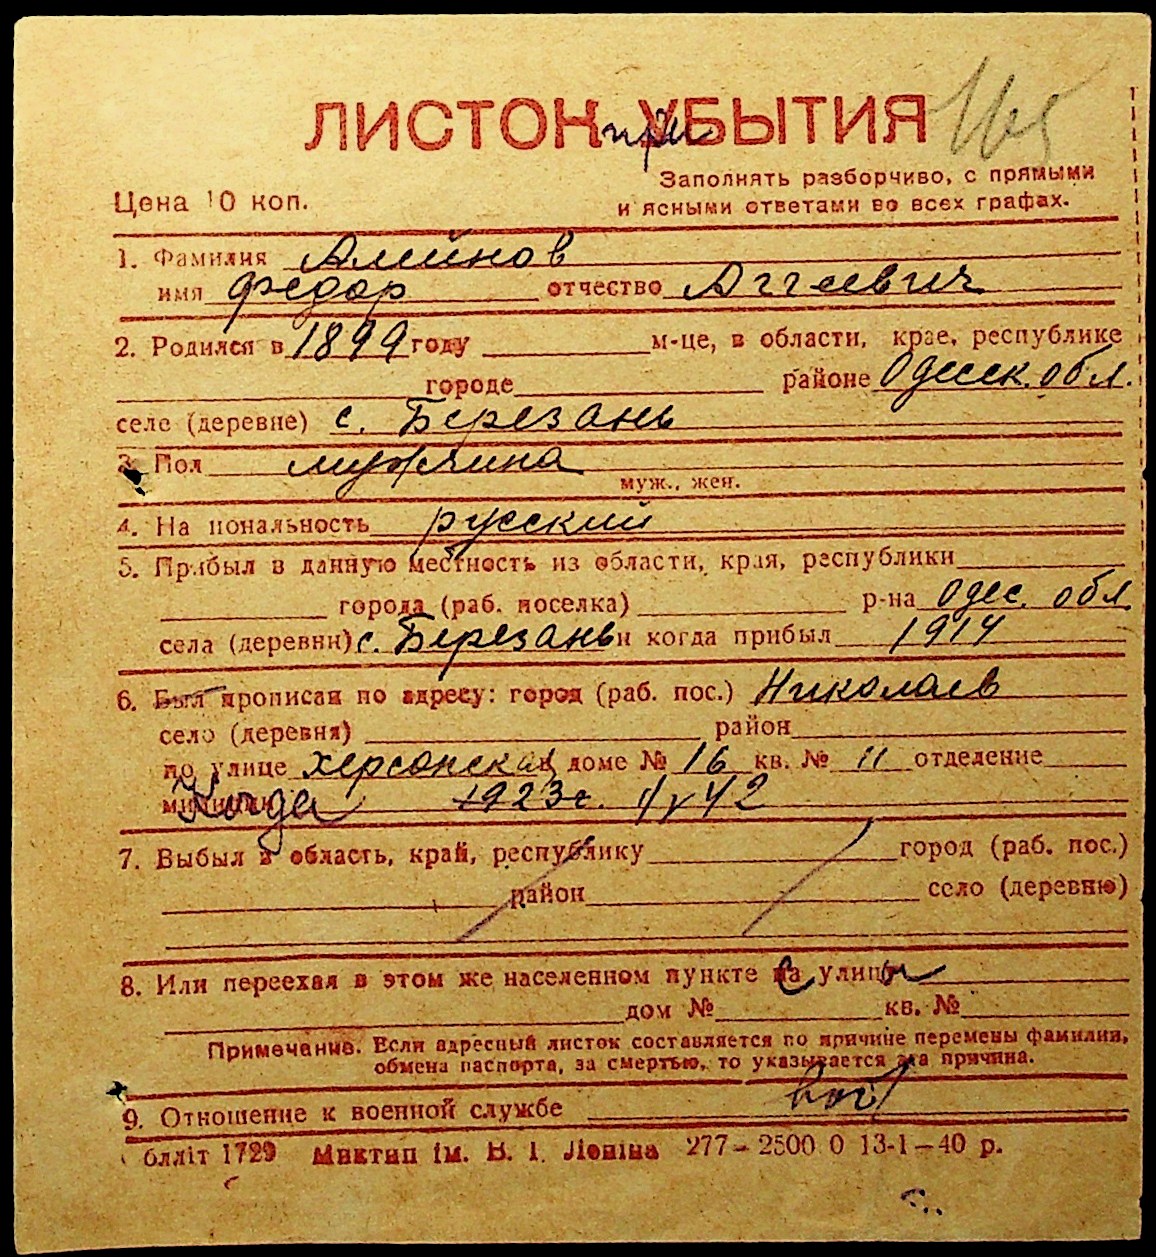 ЛИСТОК УБЫТИЯ
при
165
Цена 10 коп.
Заполнять разборчиво, с прямыми
и ясными ответами во всех графах.
1. Фамилия Алейнов
имя Федор отчество Аггеевич
2. Родился в 1899 году м-це, в области, крае, республике
городе районе Одесск. обл.
селе (деревне) с. Березань
3. Пол мужчина
муж., жен.
4. На иональность русский
5. Прибыл в данную местность из области, края, республики
города (раб. поселка) р-на Одес. обл
села (деревни) с. Березань и когда прибыл 1914
6. Был прописан по адресу: город (раб. пос.) Николаев
село (деревня) район
по улице Херсонская доме № 16 кв. № 11 отделение
милиции Когда 1923 г.
7. Выбыл в область, край, республику город (раб. пос.)
район село (деревню)
8. Или переехал в этом же населенном пункте на улицу
с ы
дом № кв. №
Примечание. Если адресный листок составляется по причине перемены фамилии,
обмена паспорта, за смертью, то указывается эта причина.
9. Отношение к военной службе
блліт 1729 Миктип ім. В. І. Леніна 277-2500 0 13-1-40 р.